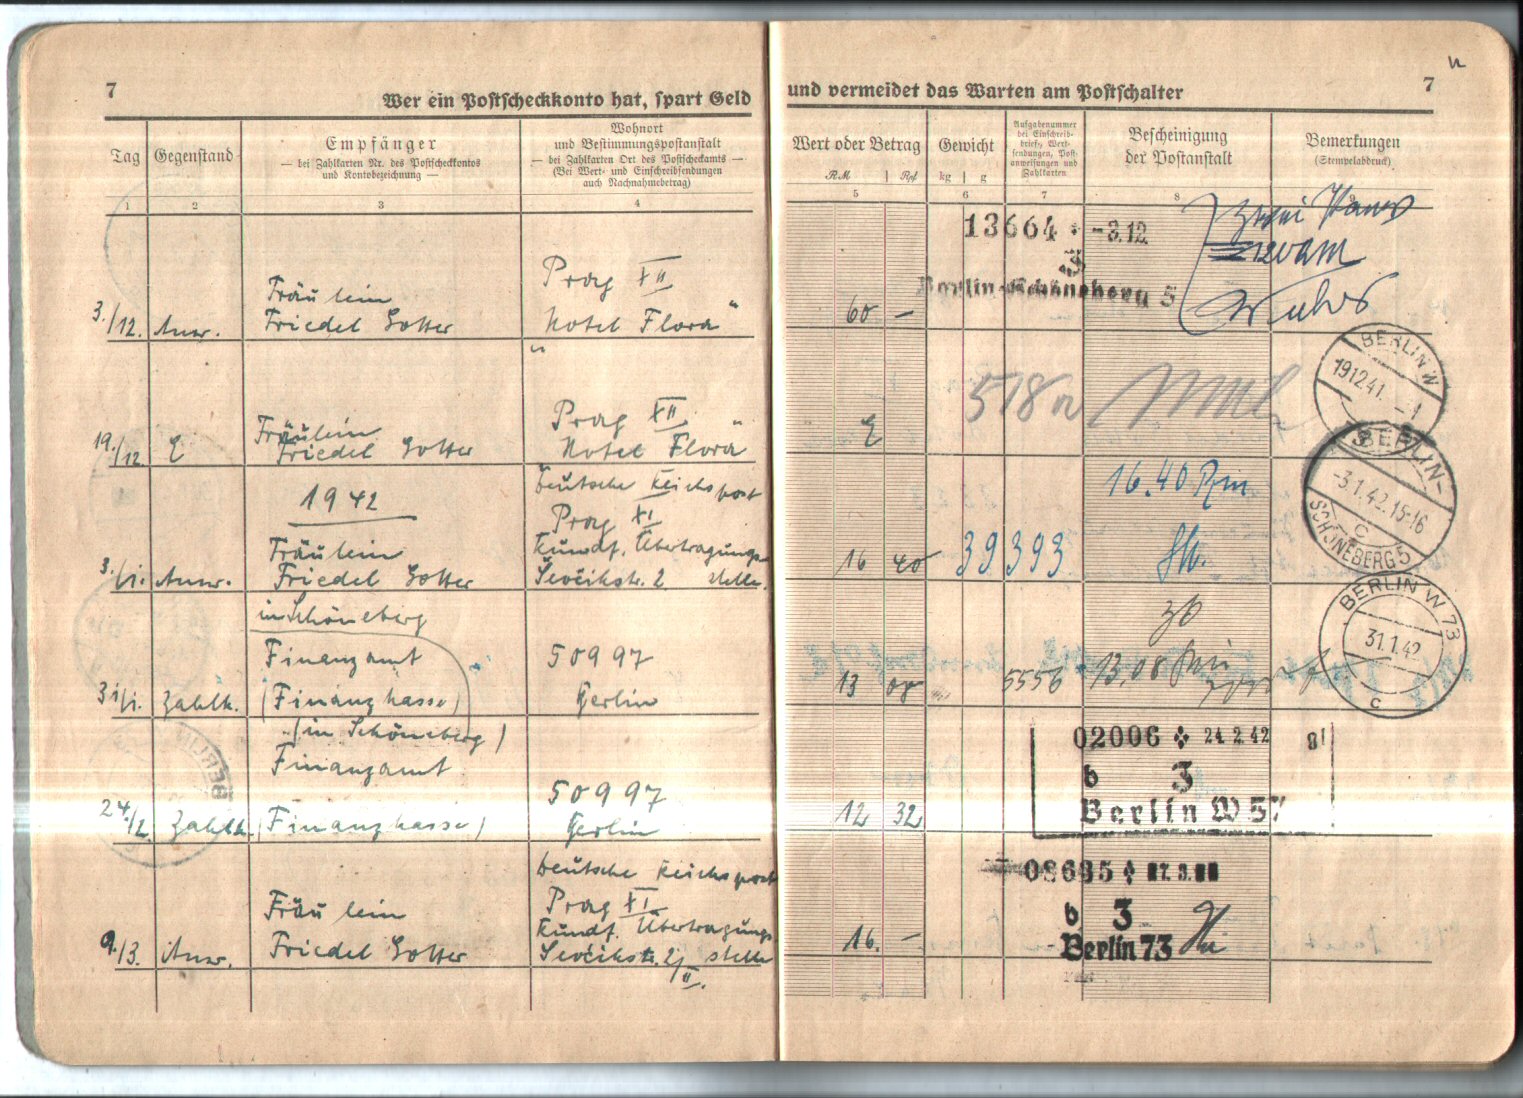 7
Wer ein Postscheckkonto hat, spart Geld
und vermeidet das Warten am Postschalter
7
Tag
Gegenstand
Empfänger
— bei Zahlkarten Nr. des Postscheckkontos
und Kontobezeichnung —
Wohnort
und Bestimmungspostanstalt
— bei Zahlkarten Ort des Postscheckamts —
(Bei Wert- und Einschreibsendungen
auch Nachnahmebetrag)
Wert oder Betrag
RM Rpf
Gewicht
kg g
Aufgabenummer
bei Einschreib-
briefen, Wert-
sendungen, Post-
anweisungen und
Zahlkarten
Bescheinigung
der Postanstalt
Bemerkungen
(Stempelabdruck)
1 2 3 4 5 6 7 8
13664 -3.12.
Berlin-Schöneberg 5
Prag XII
Fräulein
3./12. Anw. Friedel Gotter Hotel Flora"
60 —
"
BERLIN W
19.12.41.
518
Prag XII
Fräulein
19./12. E Friedel Gotter Hotel Flora"
E
BERLIN-
SCHÖNEBERG 5
-3.1.42.15-16
c
1942
Deutsche Reichspost
Prag XI
Fräulein Kundf. Übertragungs-
3./1. Anw. Friedel Gotter Sevčikstr. 2 stelle.
16 40 39393
16.40
in Schöneberg
Finanzamt 50997
31./1. Zahlk. (Finanzkasse) Berlin
13 08 5556 13,08
BERLIN W 73
31.1.42
c
(in Schöneberg)
Finanzamt
50997
24./2. Zahlk. (Finanzkasse) Berlin
12 32
02006 24.2.42
b 3
Berlin W 57
Deutsche Reichspost
Prag XI
Fräulein Kundf. Übertragungs-
9./3. Anw. Friedel Gotter Sevčikstr. 2/ stelle
II.
16. —
08685
b 3
Berlin 73